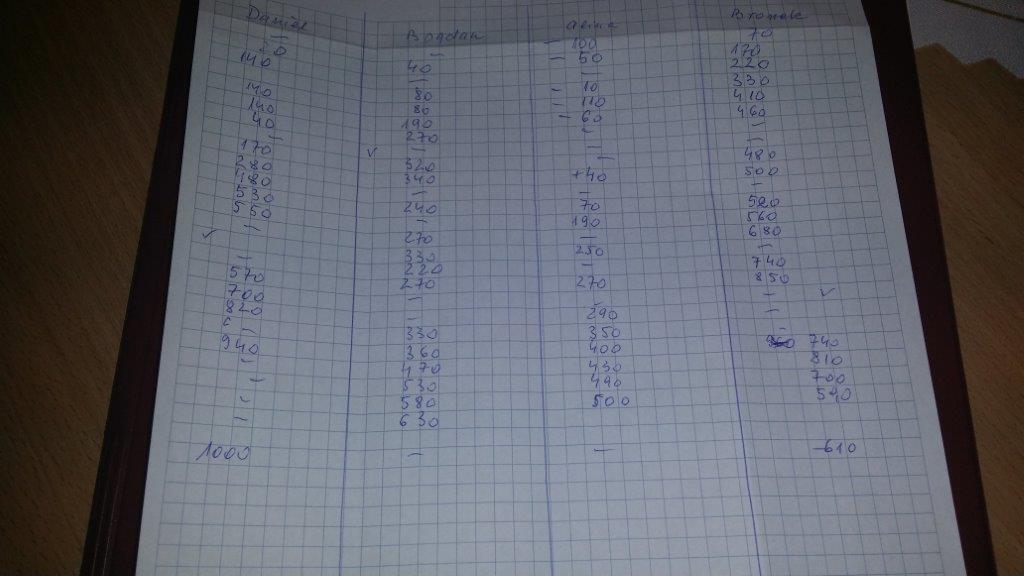 Daniel Bogdan
— — 100 70
20 — — 50 170
140 40 — 220
— — 10 330
140 80 — 110 410
140 80 — 60 460
40 190 — —
— 270 — —
170 ✓ — — 480
280 320 +40 500
480 340 — —
530 — 70 520
550 240 190 560
— — — 680
✓ 270 250 —
— 330 — 740
570 220 270 850
700 270 — — ✓
820 — 290 —
— — 350 —
940 330 400 740
— 360 430 810
— 470 490 700
— 530 500 590
— 580
630
1000 — — 610